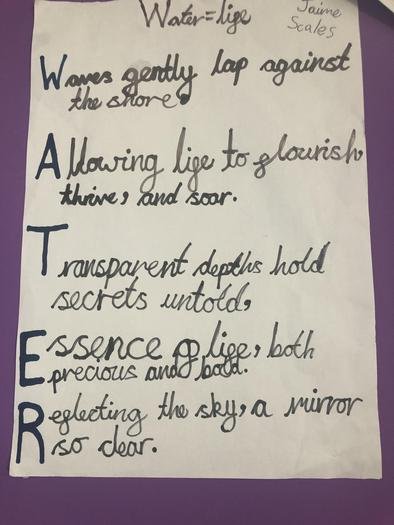 Water=life
Jaime
Scales
Waves gently lap against
the shore,
Allowing life to flourish,
thrive, and soar.
Transparent depths hold
secrets untold,
Essence of life, both
precious and bold.
Reflecting the sky, a mirror
so clear.